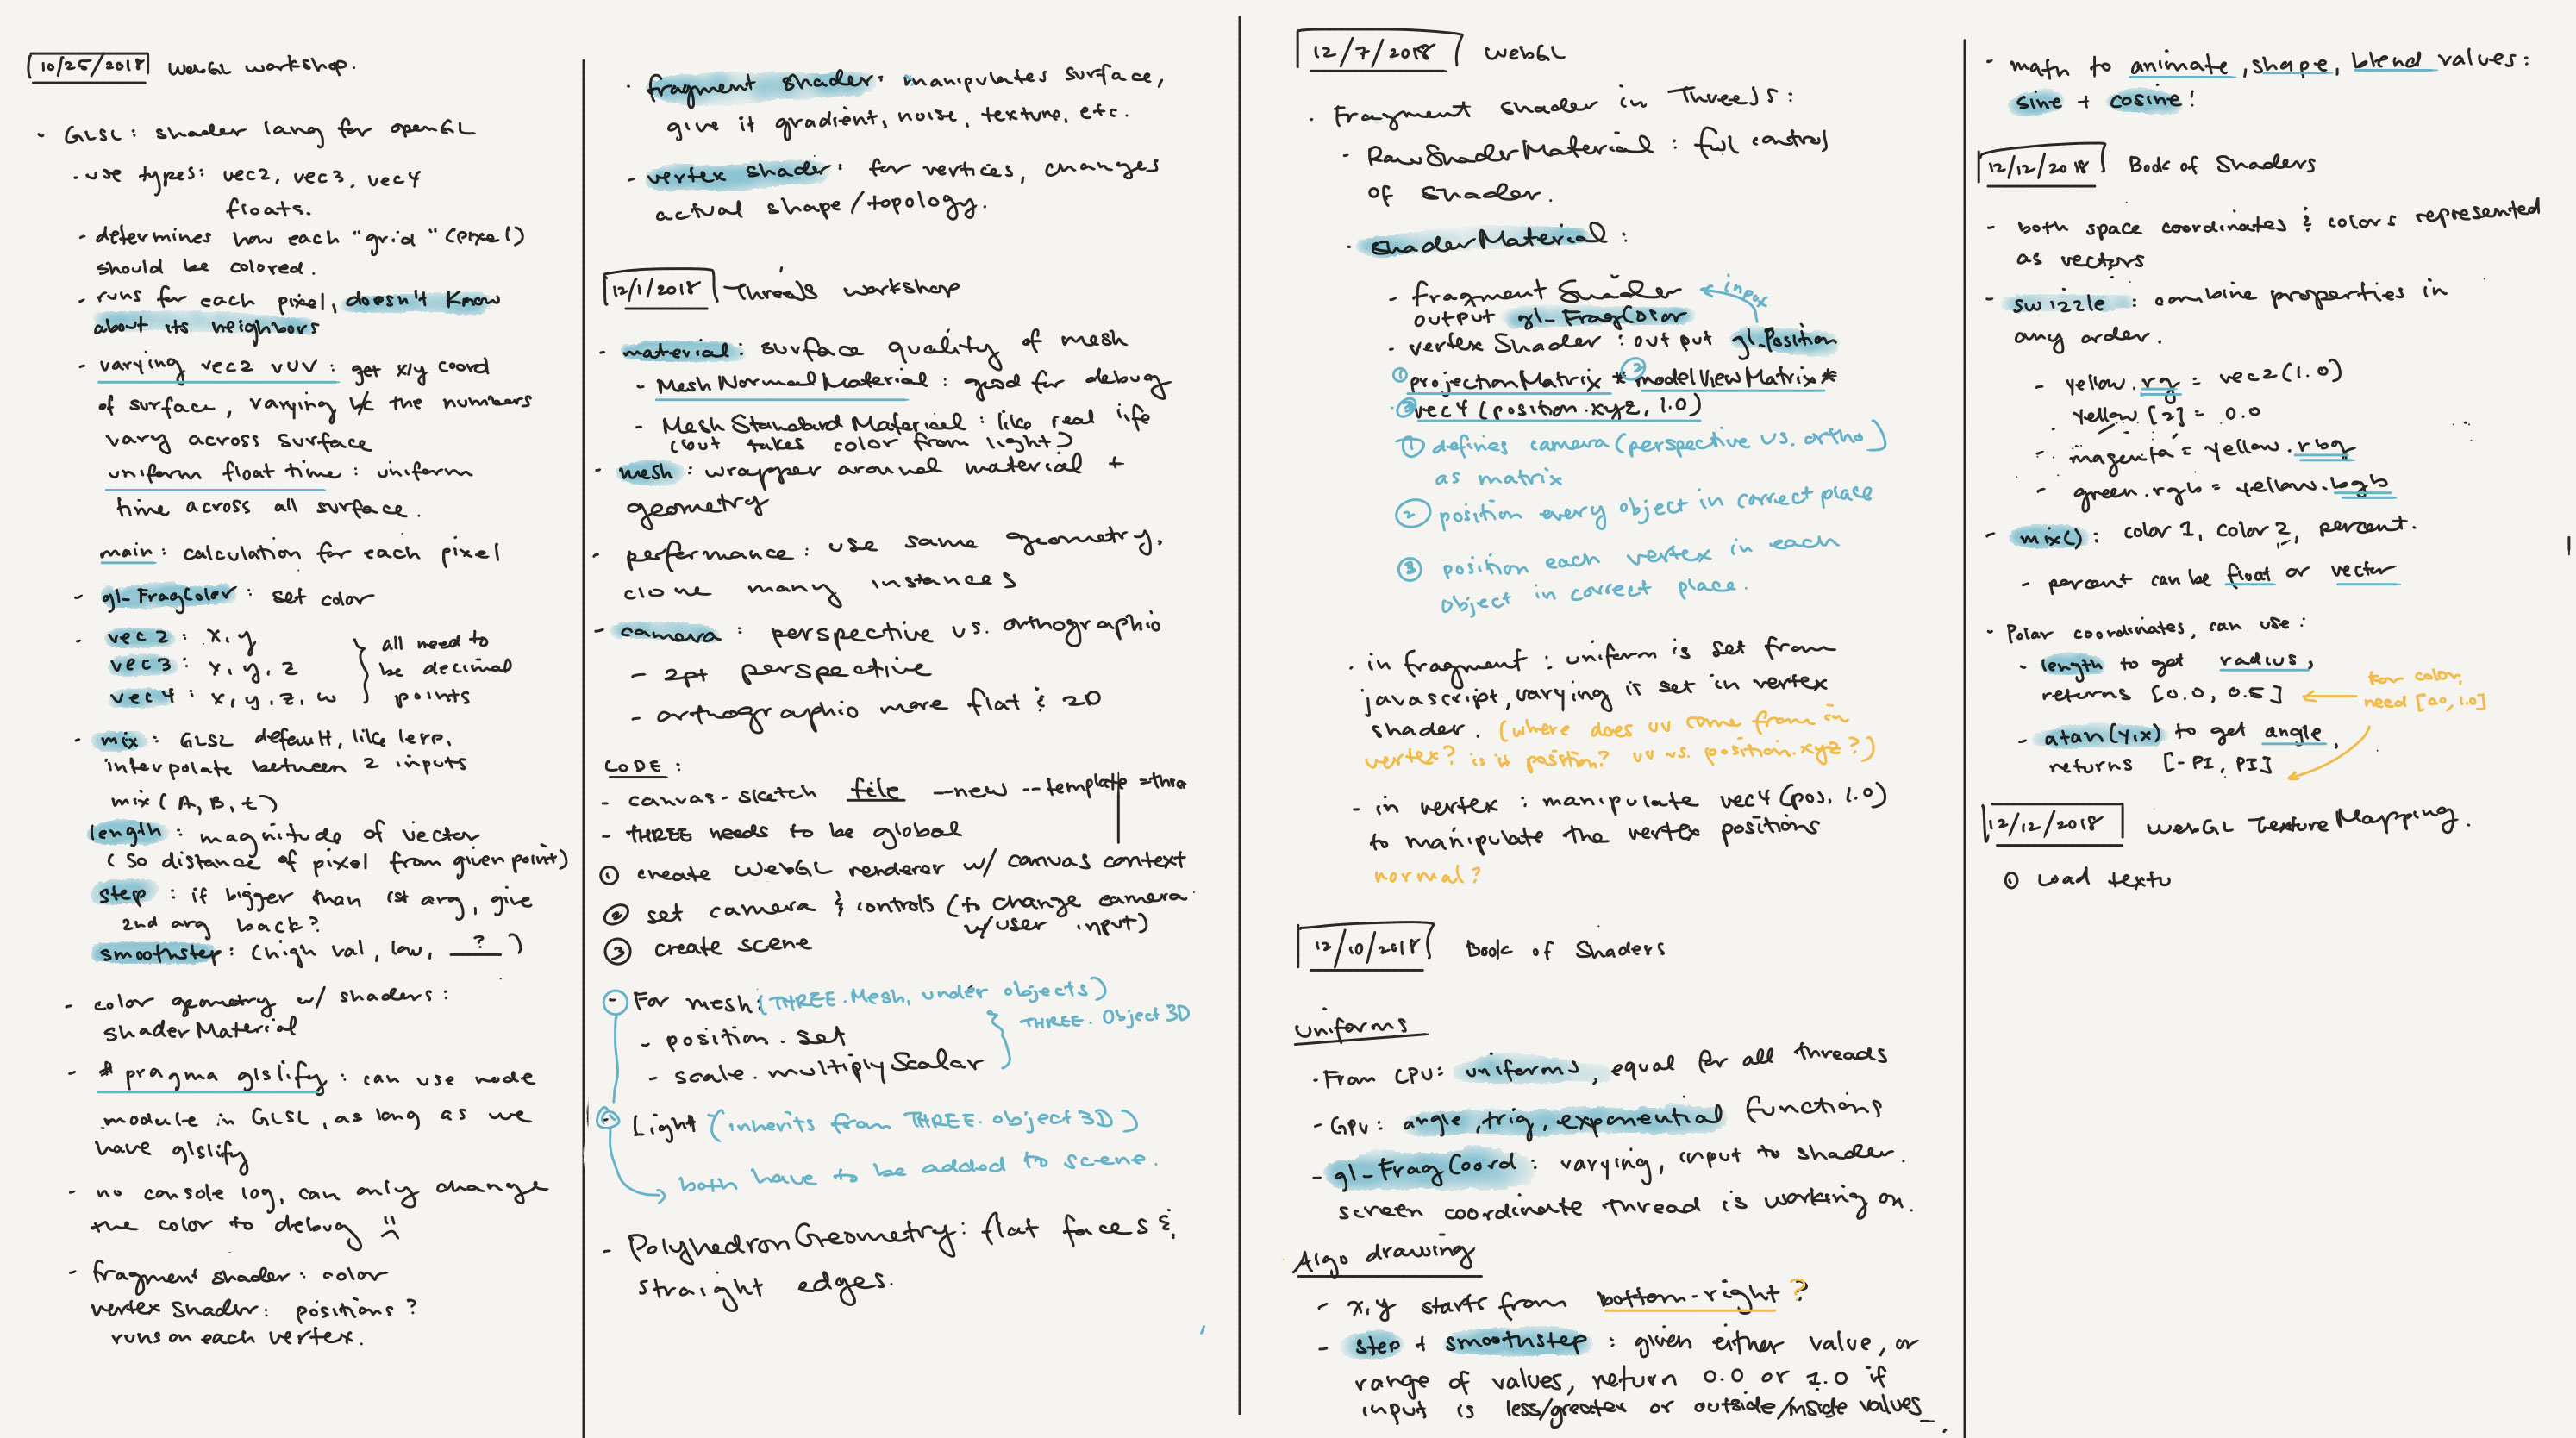 10/25/2018 WebGL workshop.
- GLSL: shader lang for openGL
- use types: vec2, vec3, vec4
floats.
- determines how each "grid" (pixel)
should be colored.
- runs for each pixel, doesn't know
about its neighbors
- varying vec2 vUV: get x/y coord
of surface, varying b/c the numbers
vary across surface
uniform float time: uniform
time across all surface.
main: calculation for each pixel
- gl_FragColor: set color
- vec2: x, y
vec3: x, y, z
vec4: x, y, z, w
} all need to
be decimal
points
- mix: GLSL default, like lerp.
interpolate between 2 inputs
mix(A, B, t)
length: magnitude of vector
(so distance of pixel from given point)
step: if bigger than 1st arg, give
2nd arg back?
smoothstep: (high val, low, ?)
- color geometry w/ shaders:
shaderMaterial
- # pragma glslify: can use node
module in GLSL, as long as we
have glslify
- no console log, can only change
the color to debug
- fragment shader: color
vertex shader: positions?
runs on each vertex.
- fragment shader: manipulates surface,
give it gradient, noise, texture, etc.
- vertex shader: for vertices, changes
actual shape/topology.
12/1/2018 ThreeJS workshop
- material: surface quality of mesh
- MeshNormalMaterial: good for debug
- MeshStandardMaterial: like real life
(but takes color from light?)
- mesh: wrapper around material +
geometry
- performance: use same geometry,
clone many instances
- camera: perspective vs. orthographic
- 2pt perspective
- orthographic more flat & 2D
CODE:
- canvas-sketch file --new --template=three
- THREE needs to be global
① create WebGL renderer w/ canvas context
② set camera & controls (to change camera
w/user input)
③ create scene
- For mesh: (THREE.Mesh, under objects)
- position.set
- scale.multiplyScalar
} THREE.Object3D
- Light (inherits from THREE.object3D)
both have to be added to scene.
- PolyhedronGeometry: flat faces &
straight edges.
12/7/2018 WebGL
- Fragment shader in ThreeJS:
- RawShaderMaterial: full control
of shader.
- shaderMaterial:
- fragment Shader
input
output gl_FragColor
- vertex Shader: output gl_Position
① projectionMatrix * ② modelViewMatrix *
③ vec4(position.xyz, 1.0)
① defines camera (perspective vs. ortho)
as matrix
② position every object in correct place
③ position each vertex in each
object in correct place.
- in fragment: uniform is set from
javascript, varying is set in vertex
shader. (where does uv come from in
vertex? is it position? uv vs. position.xyz?)
- in vertex: manipulate vec4(pos, 1.0)
to manipulate the vertex positions
normal?
12/10/2018 Book of Shaders
uniforms
- From CPU: uniforms, equal for all threads
- GPU: angle, trig, exponential functions
- gl_FragCoord: varying, input to shader.
screen coordinate thread is working on.
Algo drawing
- x,y starts from bottom-right?
- step + smoothstep: given either value, or
range of values, return 0.0 or 1.0 if
input is less/greater or outside/inside values
- math to animate, shape, blend values:
sine + cosine!
12/12/2018 Book of Shaders
- both space coordinates & colors represented
as vectors
- swizzle: combine properties in
any order.
- yellow.rg = vec2(1.0)
yellow[2] = 0.0
- magenta = yellow.rbg
- green.rgb = yellow.bgb
- mix(): color 1, color 2, percent.
- percent can be float or vector
- Polar coordinates, can use:
- length to get radius,
returns [0.0, 0.5]
for color,
need [0.0, 1.0]
- atan(y,x) to get angle,
returns [-PI, PI]
12/12/2018 WebGL Texture Mapping.
① Load textu